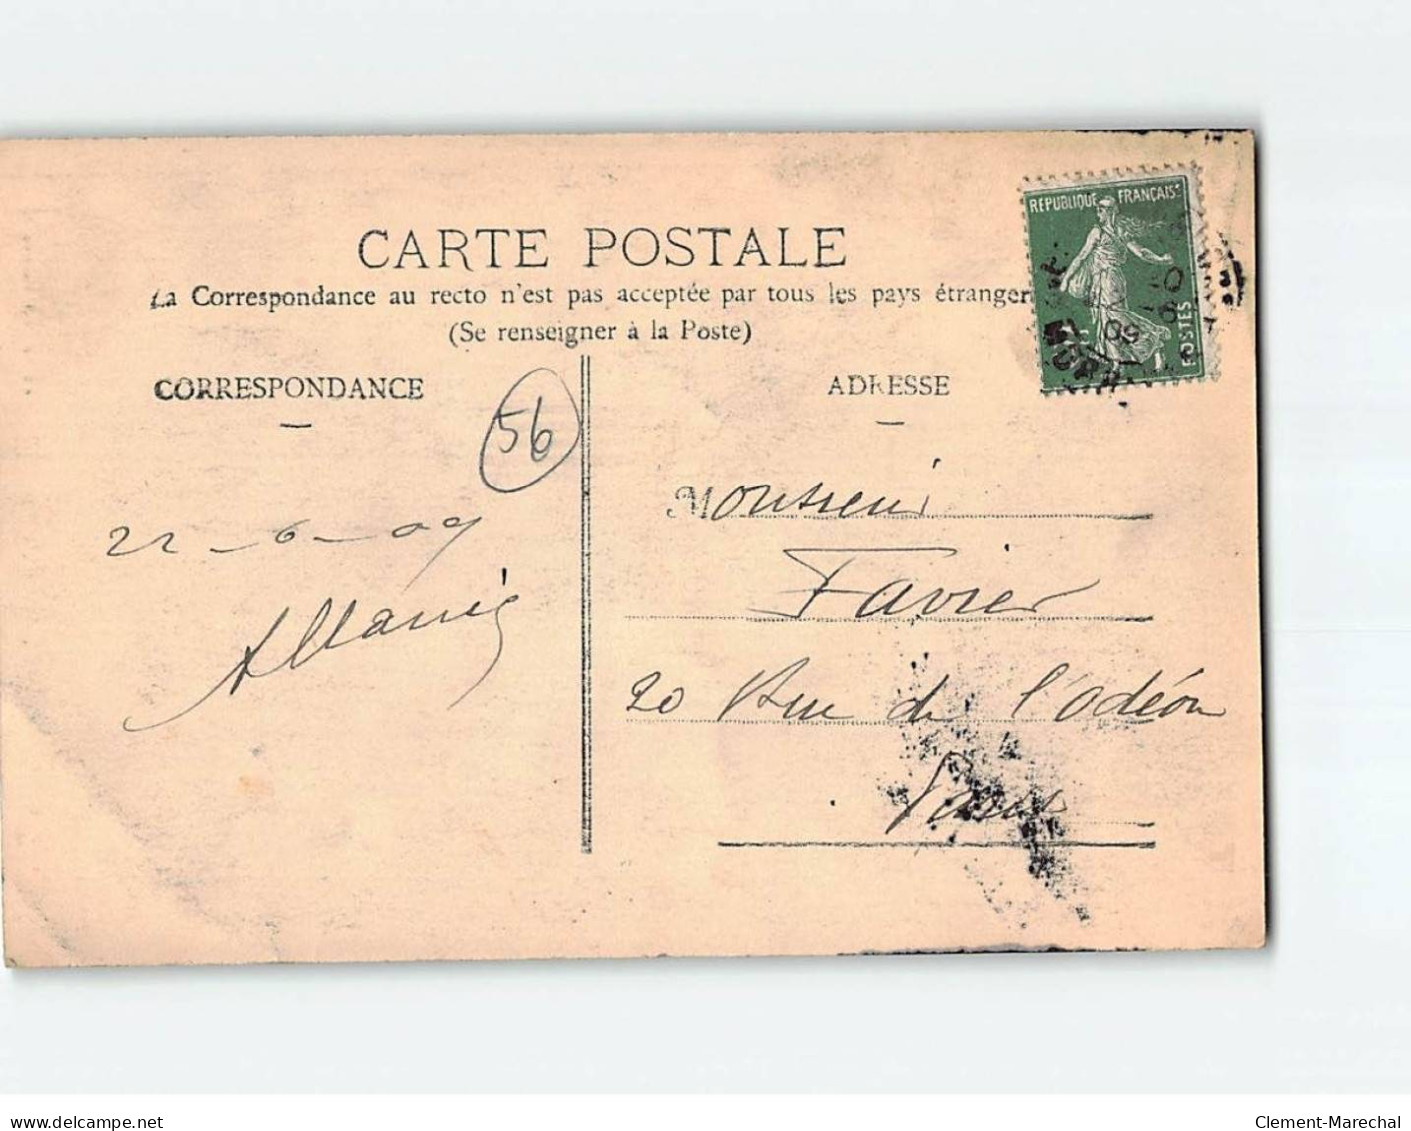 CARTE POSTALE
La Correspondance au recto n'est pas acceptée par tous les pays étranger
(Se renseigner à la Poste)
CORRESPONDANCE
ADRESSE
REPUBLIQUE FRANÇAISE
POSTES
09
56
22-6-09
Monsieur
Favier
20 Rue de l'Odéon
Paris
delcampe.net
Clement-Marechal